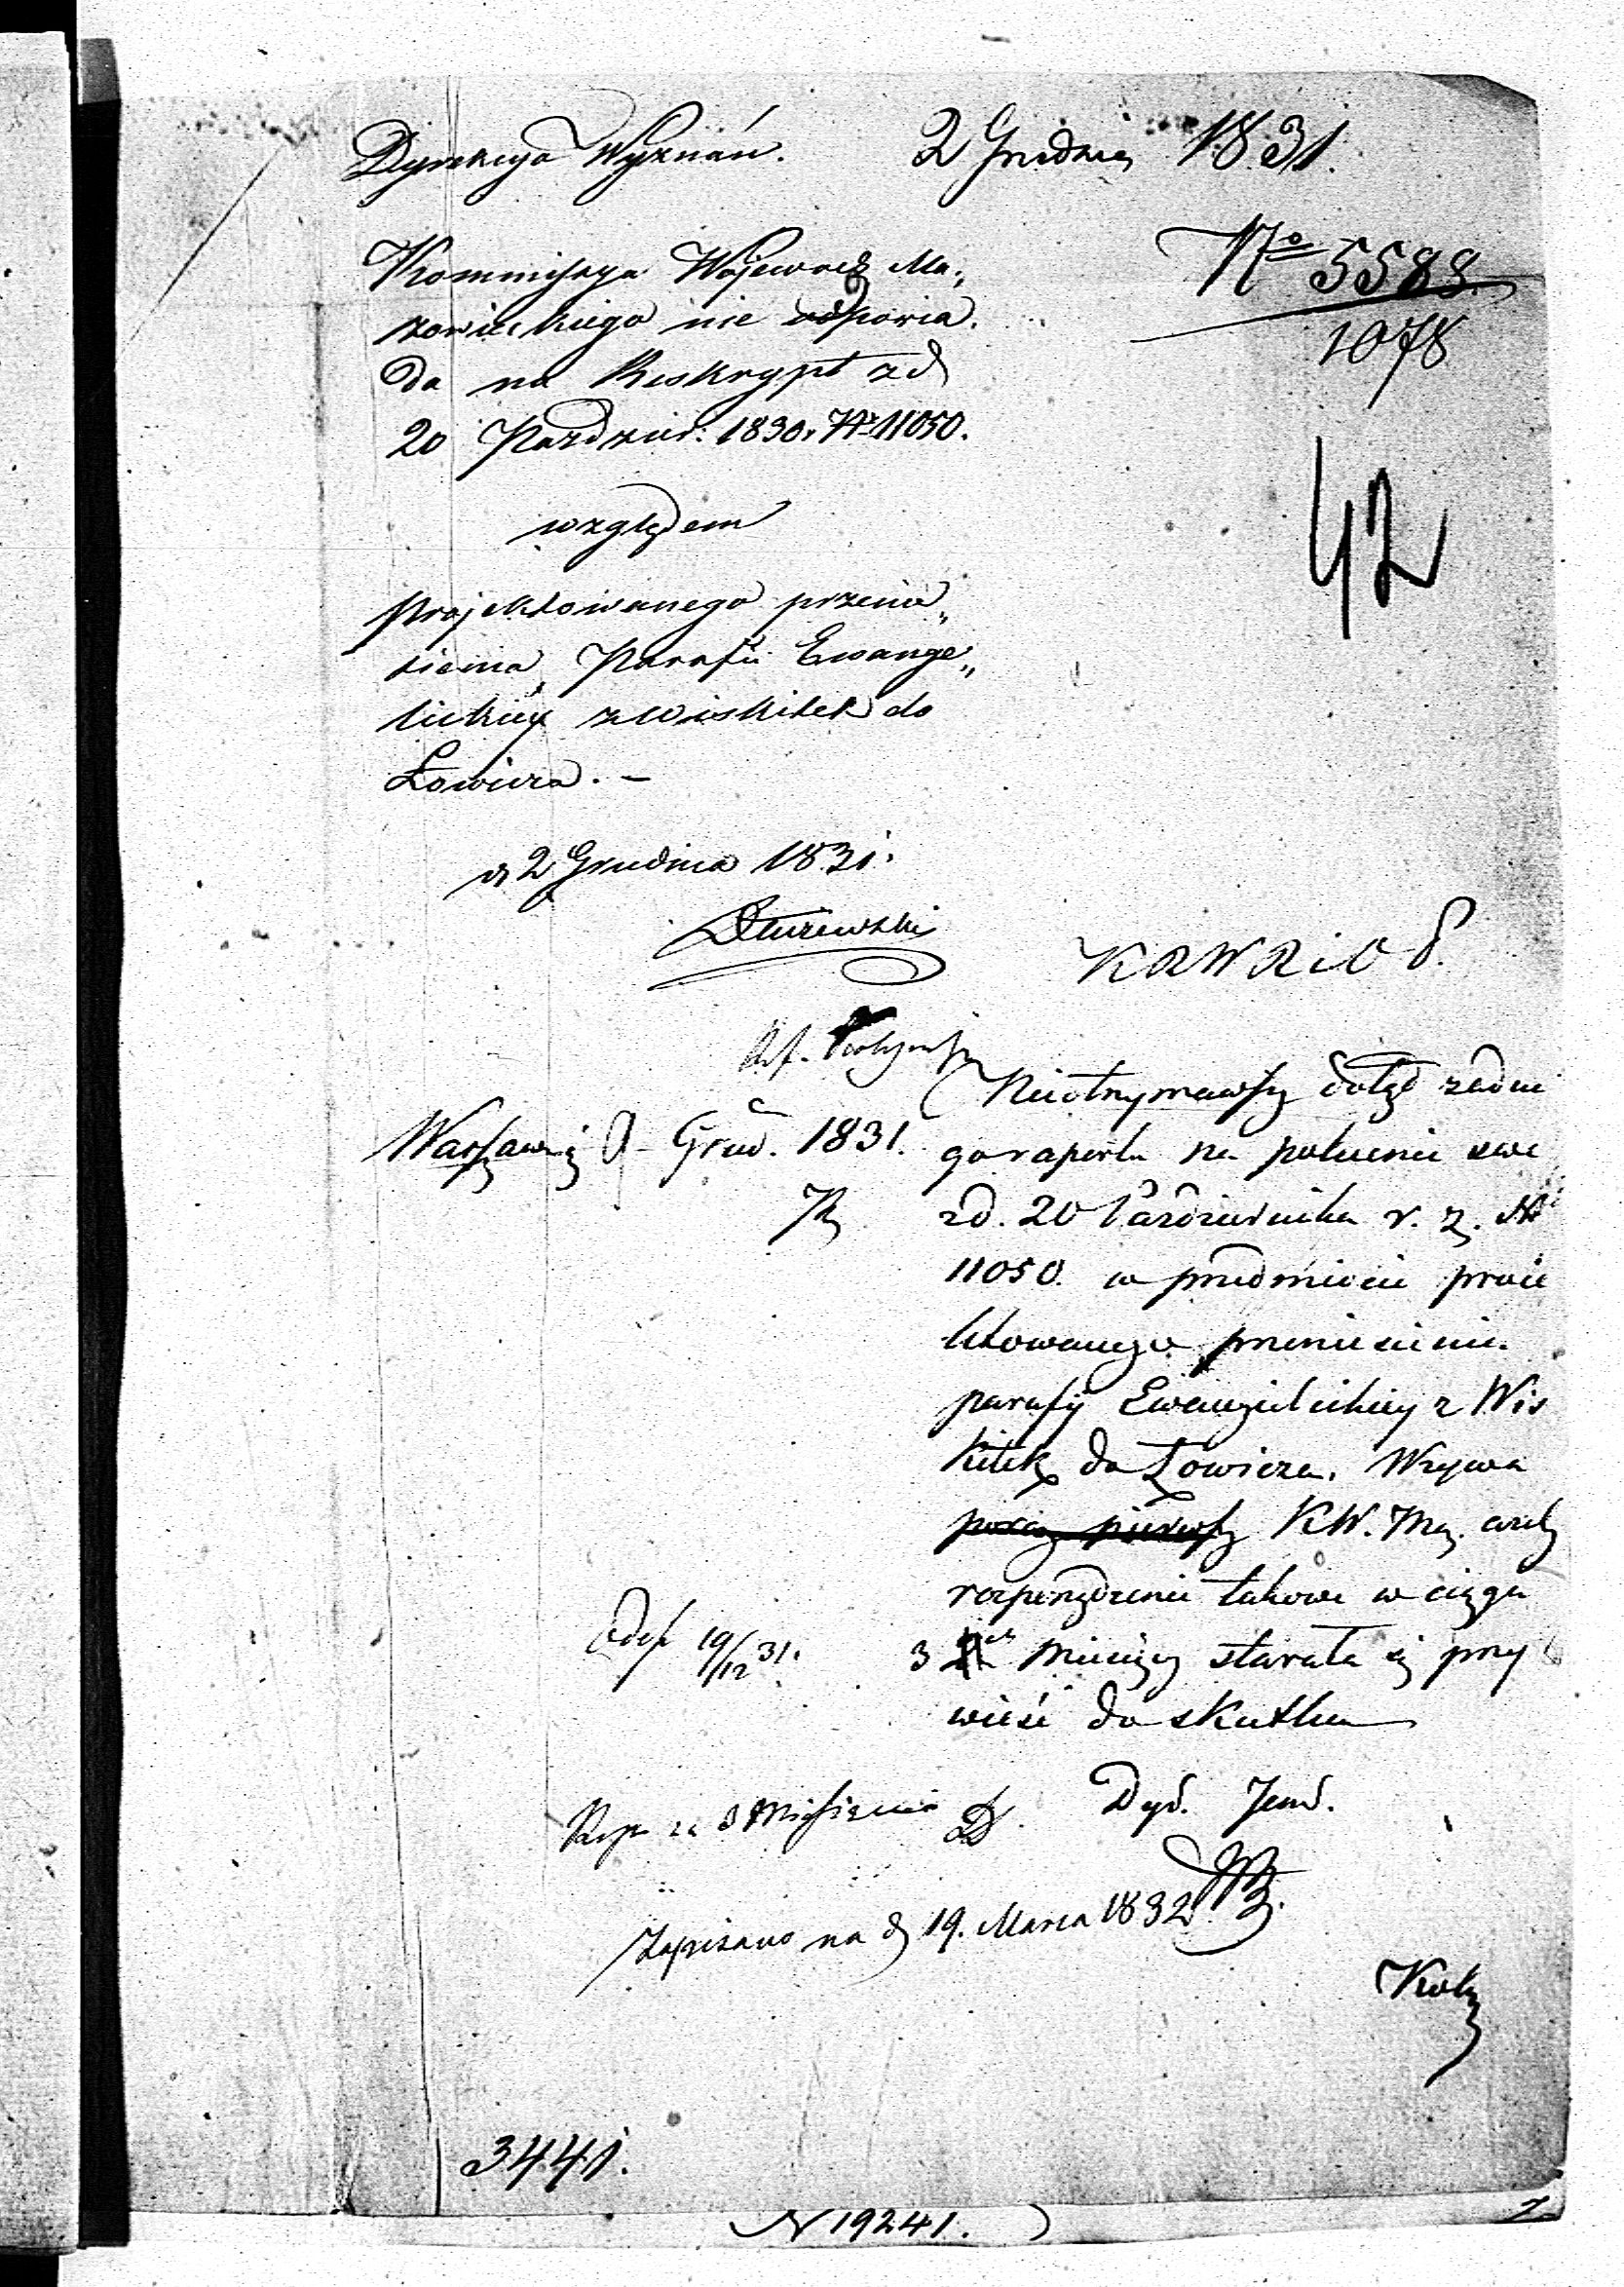 Dyrekcya Wyznań. 2 Grudnia 1831.
No 5588
1078
Kommissya Wojewodz Ma,
zowieckiego nie odpowia.
da na Reskrypt zd
20 Paździer: 1830 r. Nr 11050.
42
względem
projektowanego przenie„
sienia Parafii Ewange„
lickiey z Wiskitek do
Łowicza. –
d 2 Grudnia 1831.
KRWRiOP.
Nieotrzymawszy dotąd żadne
Warszawa d Grud. 1831.
go raportu na polecenie swe
zd. 20 Października r. z. Nr
11050. w przedmiocie proie
ktowanego przeniesienia
parafij Ewangelickiey z Wis
kitek do Łowicza, Wzywa
poraz pierwszy KW. Maz. ażeby
rozporządzenie takowe w ciągu
3 miesięcy starała się przy
wieść do skutku
19/12 31.
Rep za 3 Miesiące
Dyr. Jen.
Zapisano na d 19. Marca 1832
3441.
N 19241.